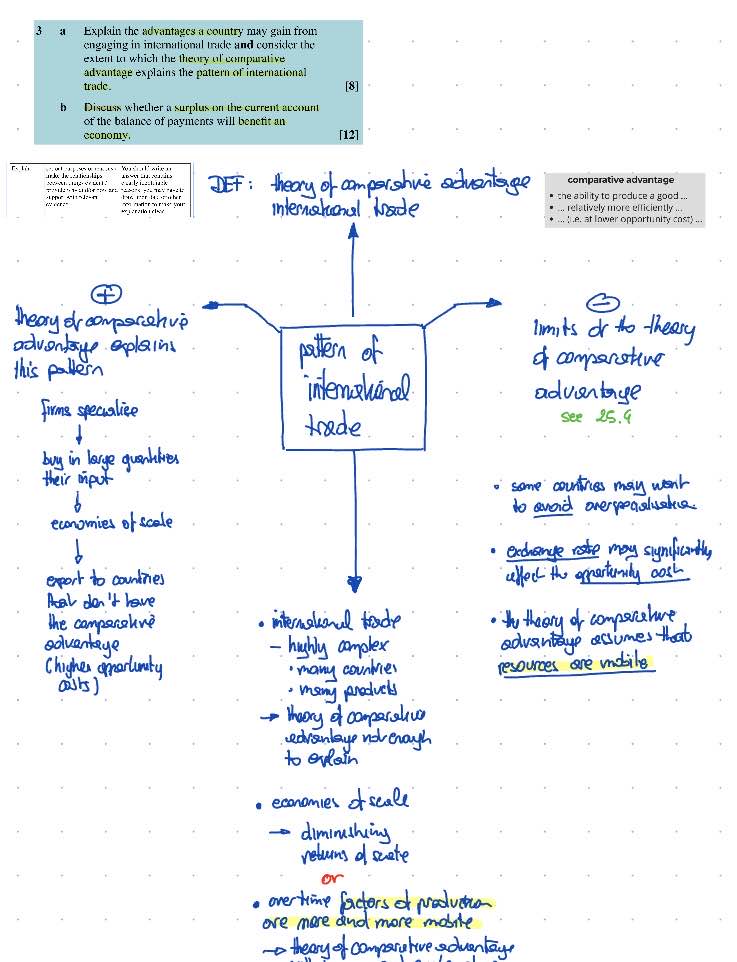 3 a Explain the advantages a country may gain from
engaging in international trade and consider the
extent to which the theory of comparative
advantage explains the pattern of international
trade. [8]
b Discuss whether a surplus on the current account
of the balance of payments will benefit an
economy. [12]
DEF: theory of comparative advantage
international trade
comparative advantage
• the ability to produce a good ...
• ... relatively more efficiently ...
• ... (i.e. at lower opportunity cost) ...
pattern of
international
trade
+
theory of comparative
advantage explains
this pattern
firms specialise
↓
buy in large quantities
their input
↓
economies of scale
↓
export to countries
that don't have
the comparative
advantage
(higher opportunity
costs)
−
limits of the theory
of comparative
advantage
see 25.4
• some countries may want
to avoid overspecialisation
• exchange rate may significantly
effect the opportunity cost
• the theory of comparative
advantage assumes that
resources are mobile
• international trade
– highly complex
• many countries
• many products
→ theory of comparative
advantage not enough
to explain
• economies of scale
→ diminishing
returns of scale
or
• overtime factors of production
are more and more mobile
→ theory of comparative advantage